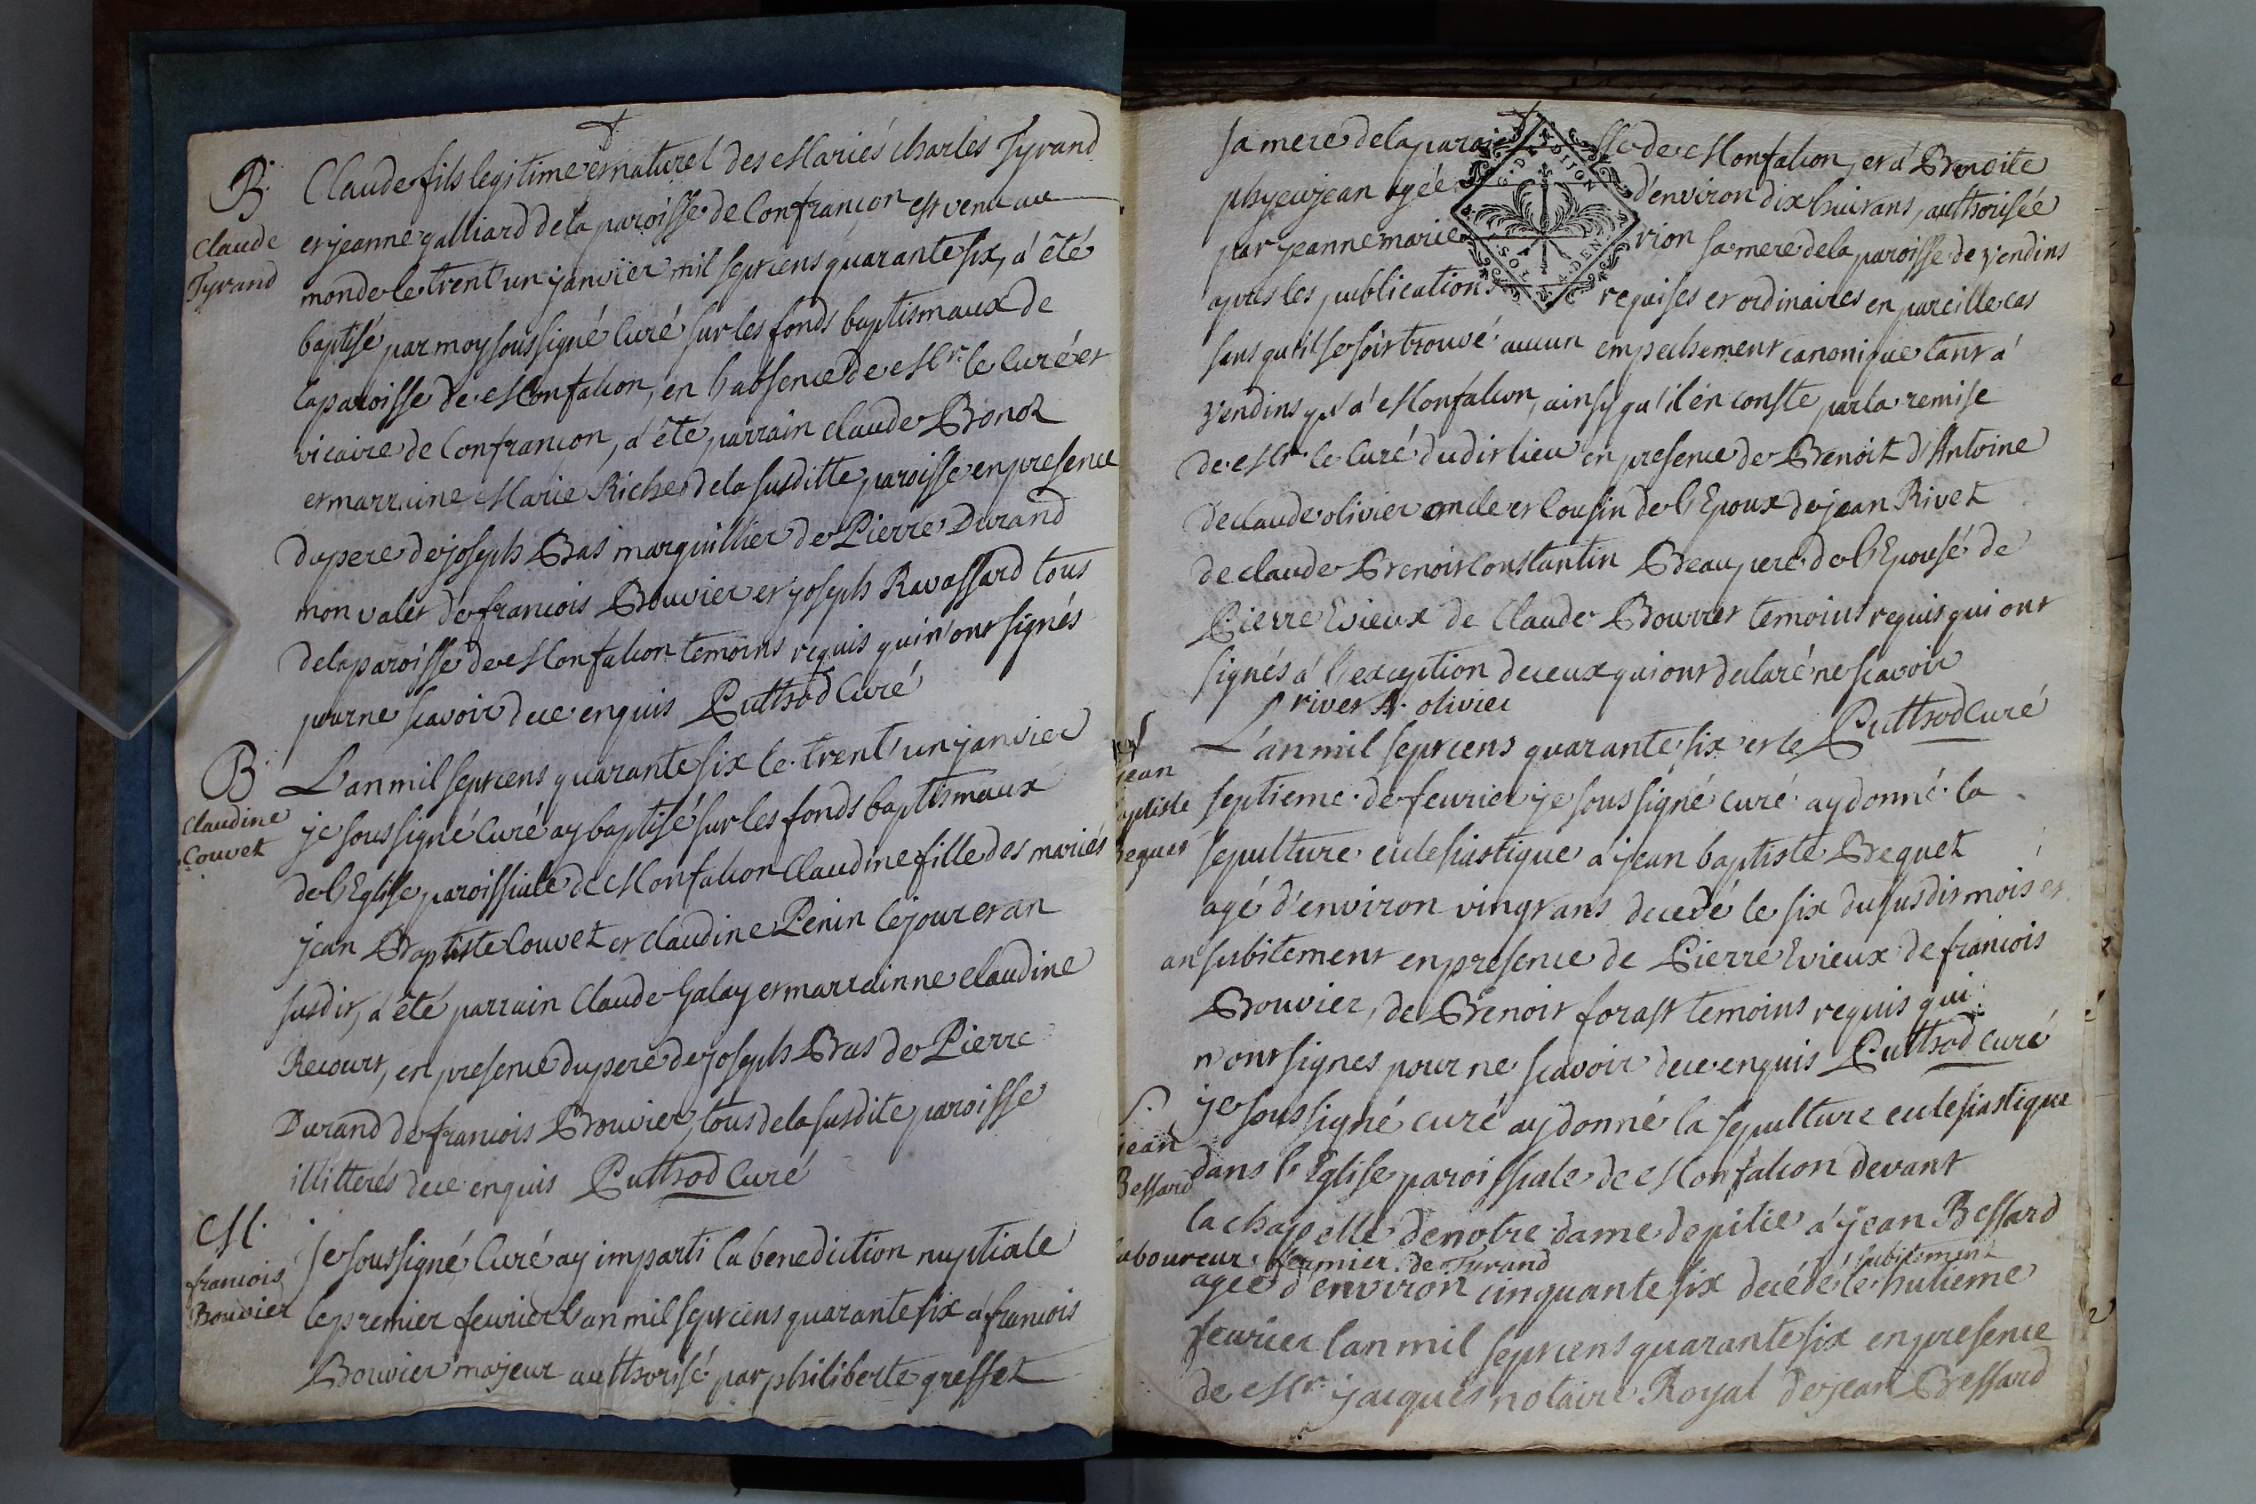 B.
Claude
Tyrand
Claude fils legitime et naturel des Mariés charles Tyrand
et jeanne galliard de la paroisse de Confrancon est venu au
monde le trent'un janvier mil sept cens quarante six, a' été
baptisé par moy soussigné Curé sur les fonds baptismaux de
la paroisse de Monfalcon, en l'absence de Mr. le Curé et
vicaire de Confrancon, a' été parrain Claude Bonot
et marraine Marie Riche de la susditte paroisse en presence
du pere de joseph Bas marguillier de Pierre Durand
mon valet de francois Bouvier et joseph Ravassard tous
de la paroisse de Monfalcon temoins requis qui n'ont signés
pour ne scavoir de ce enquis Puthod Curé
B.
Claudine
Couvet
L'an mil sept cens quarante six le trent'un janvier
je soussigné Curé ay baptisé sur les fonds baptismaux
de l'Eglise paroissiale de Monfalcon Claudine fille des mariés
jean Baptiste Couvet et claudine Penin le jour et an
susdit, a' été parrain Claude Galay et marrainne claudine
Recourt, en presence du pere de joseph Bas de Pierre
Durand de francois Bouvier, tous de la susdite paroisse
illitterés de ce enquis Puthod Curé
M.
francois
Bouvier
je soussigné Curé ay imparti la benediction nuptiale
le premier fevrier l'an mil sept cens quarante six a' francois
Bouvier majeur authorisé par philiberte greffet
sa mere de la paroisse de Monfalcon, et a' Benoite
phyeujean agée d'environ dix huit ans, authorisée
par jeanne marie rion sa mere de la paroisse de Vendins
G. D. DIJON
SOL
4. DEN
apres les publications requises et ordinaires en pareille cas
sans qu'il se soit trouvé aucun empechement canonique tant a'
Vendins qu'a' Monfalcon, ainsy qu'il en conste par la remise
de Mr. le Curé dudit lieu en presence de Benoit d'Antoine
de claude olivier oncle et Cousin de l'Epoux de jean Rivet
de claude Benoit Constantin Beaupere de l'Epousé de
Pierre Evieux de Claude Bourret temoins requis qui ont
signés a' l'exception de ceux qui ont declaré ne scavoir
rivet olivier
Puthod Curé
jean
baptiste
Beguet
L'an mil sept cens quarante six et le
septieme de fevrier je soussigné curé ay donné la
sepulture eclesiastique a' jean baptiste Beguet
agé d'environ vingt ans decedé le six du susdit mois et
an subitement en presence de Pierre Evieux de francois
Bouvier, de Benoit forast temoins requis qui
n'ont signes pour ne scavoir de ce enquis Puthod curé
S.
jean
Bessard
je soussigné curé ay donné la sepulture eclesiastique
dans l'Eglise paroissiale de Monfalcon devant
la chappelle de notre dame de pitie a' jean Bessard
laboureur fermier de Tyrand
subitement
agée d'environ cinquante six decédé le hutieme
fevrier l'an mil sept cens quarante six en presence
de Mr. jacques notaire Royal de jean Bessard